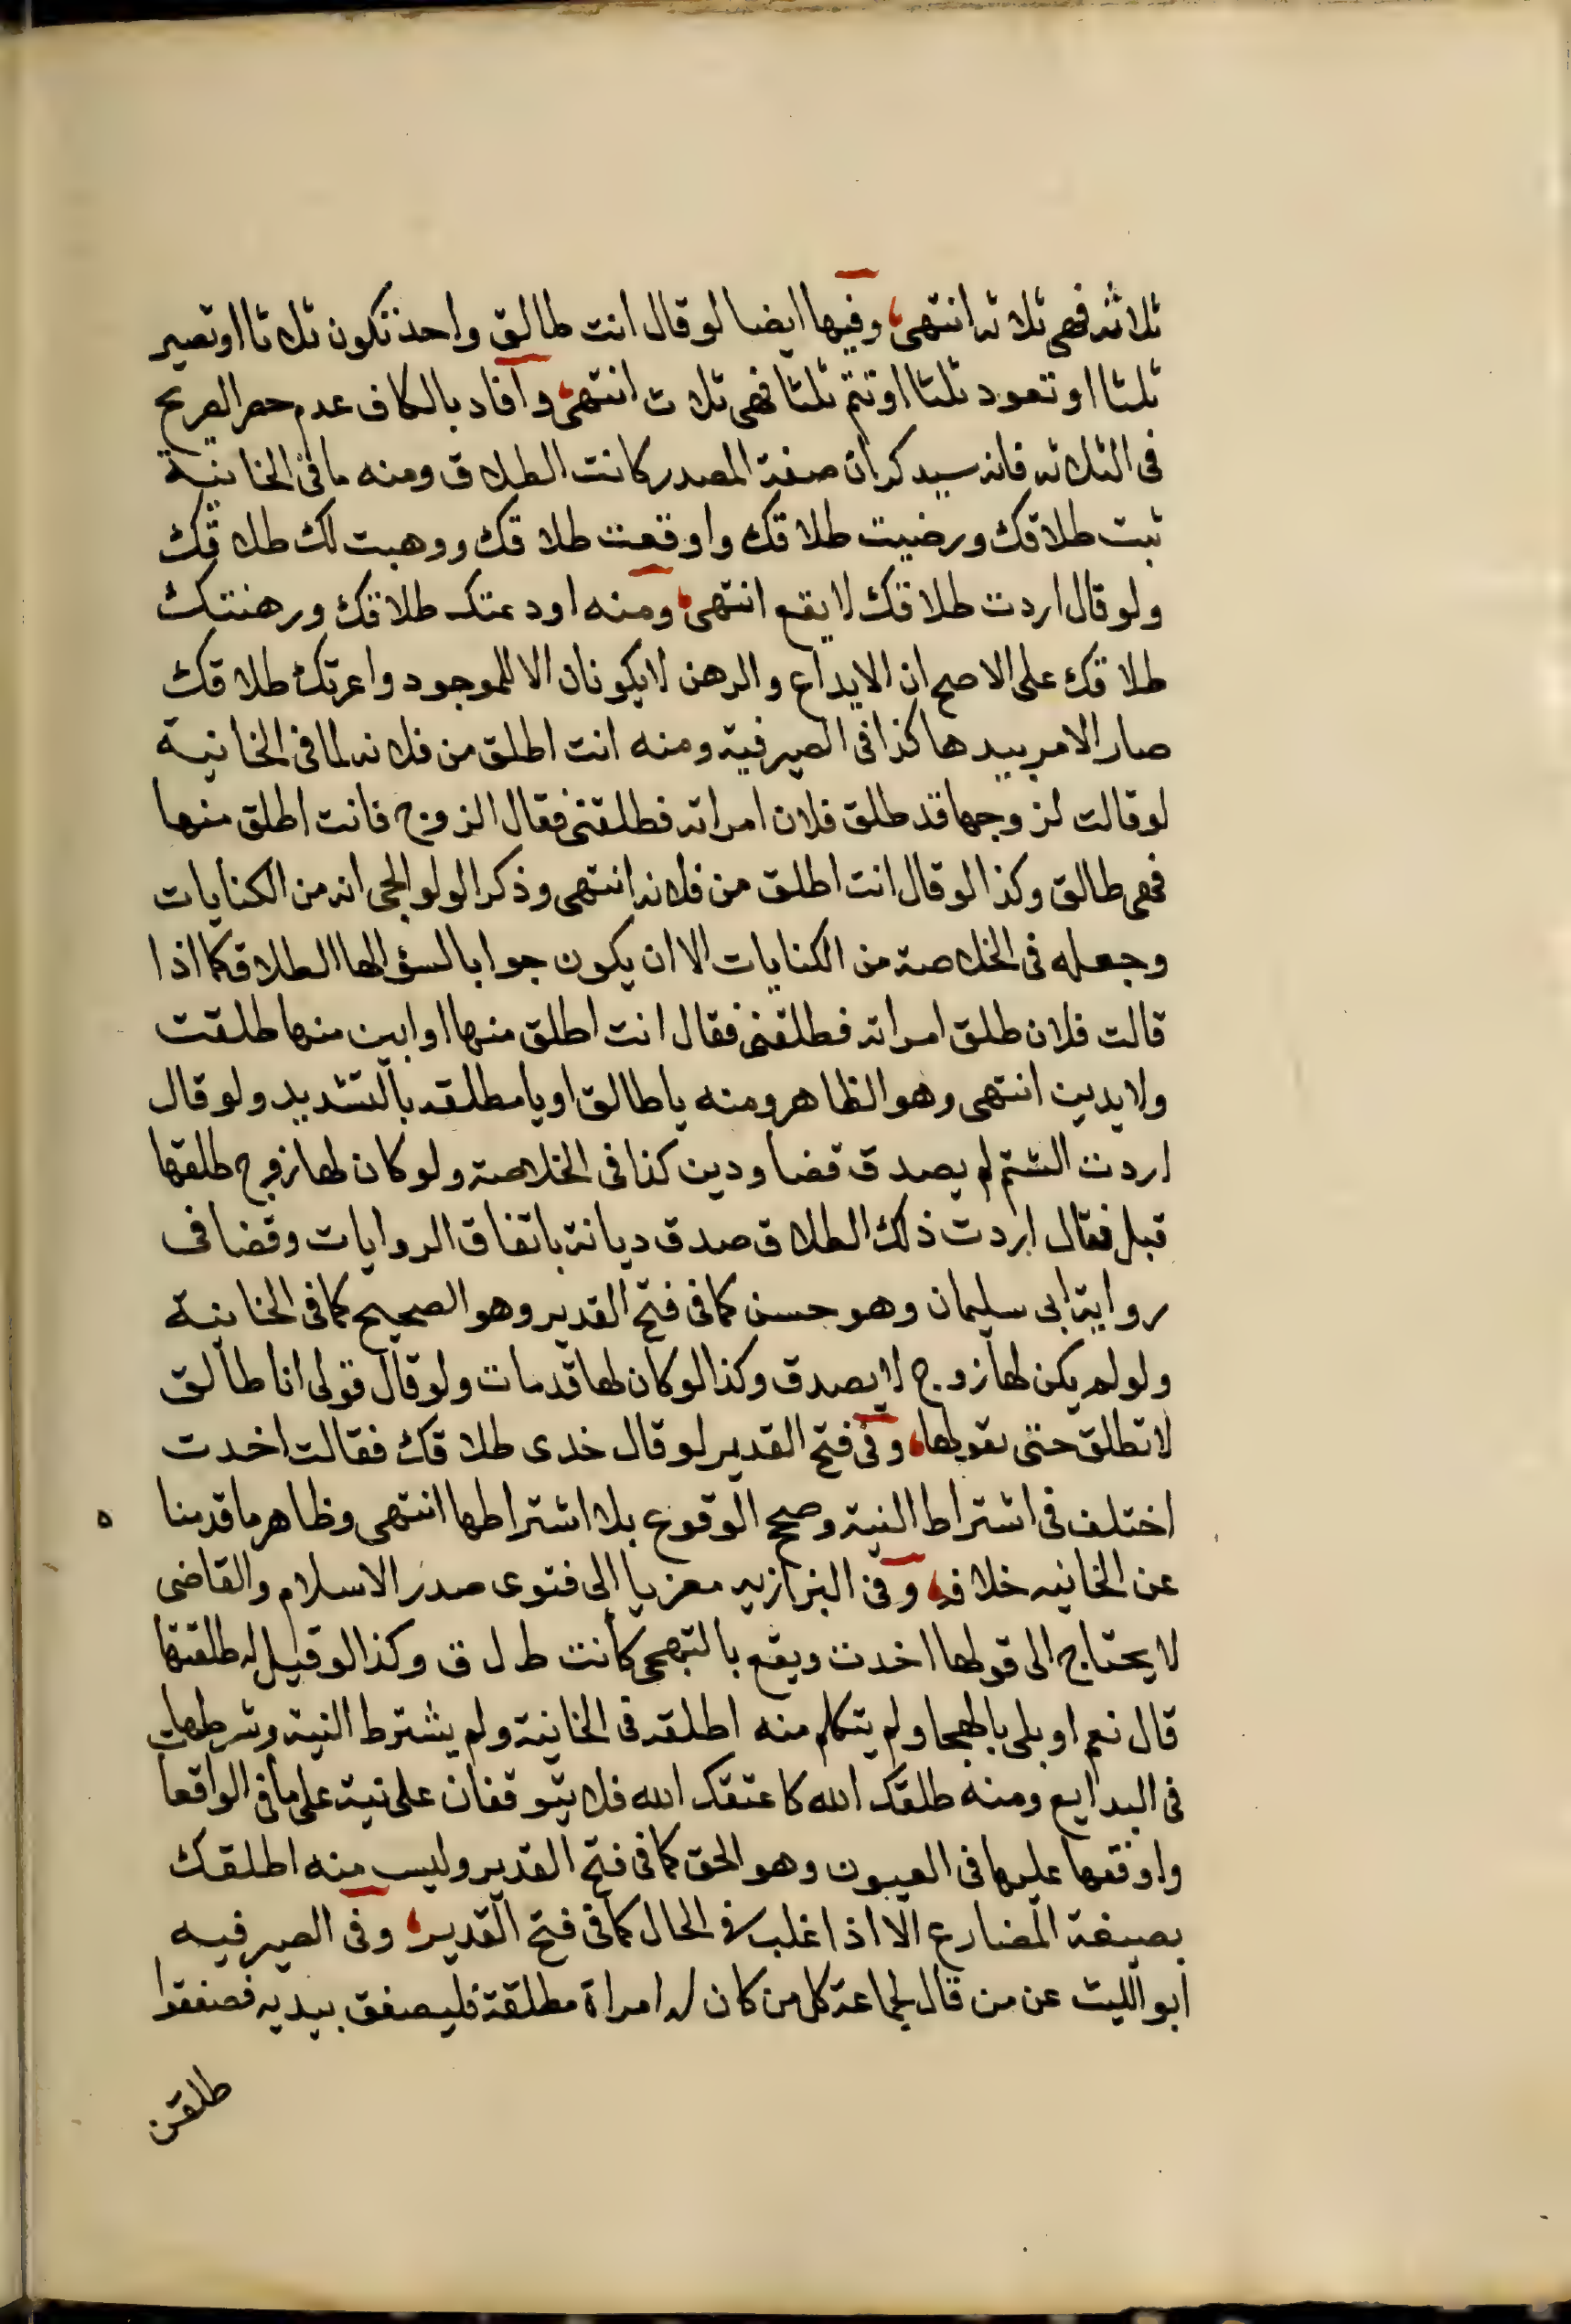 ثلاثه فهى ثلاثه انتهى، وفيها ايضا لو قال انت طالق واحدة تكون ثلاثا او تصير
ثلثا او تعود ثلثا او تتم ثلثا فهى ثلاث انتهى، وافاد بالكاف عدم حصر الصريح
فى الثلاثه فانه سيذكر ان صفة المصدر كانت الطلاق ومنه ما فى الخانية
ثبت طلاقك ورضيت طلاقك واوقعت طلاقك ووهبت لك طلاقك
ولو قال اردت طلاقك لا يقع انتهى، ومنه اودعتك طلاقك ورهنتك
طلاقك على الاصح ان الايداع والرهن لا يكونان الا للموجود واعرتك طلاقك
صار الامر بيدها كذا فى الصيرفية ومنه انت اطلق من فلانه لما فى الخانية
لو قالت لزوجها قد طلق فلان امراته فطلقنى فقال الزوج فانت اطلق منها
فهى طالق وكذا لو قال انت اطلق من فلانه انتهى وذكر الولوالجى انه من الكنايات
وجعله فى الخلاصة من الكنايات الا ان يكون جوابا لسؤالها الطلاق كما اذا
قالت فلان طلق امراته فطلقنى فقال انت اطلق منها او ابين منها طلقت
ولا يدين انتهى وهو الظاهر ومنه يا طالق او يا مطلقه بالتشديد ولو قال
اردت الشتم لم يصدق قضا ودين كذا فى الخلاصة ولو كان لها زوج طلقها
قبل فقال اردت ذلك الطلاق صدق ديانة باتفاق الروايات وقضا فى
رواية ابى سليمان وهو حسن كما فى فتح القدير وهو الصحيح كما فى الخانية
ولو لم يكن لها زوج لا يصدق وكذا لو كان لها قد مات ولو قال قولى انا طالق
لا تطلق حتى تقولها، وفى فتح القدير لو قال خدى طلاقك فقالت اخدت
اختلف فى اشتراط النية وصحح الوقوع بلا اشتراطها انتهى وظاهر ما قدمنا
عن الخانيه خلافه، وفى البزازيه معزيا الى فتوى صدر الاسلام والقاضى
لا يحتاج الى قولها اخدت ويقع بالتهجى كأنت ط ل ق وكذا لو قيل له طلقتها
قال نعم او بلى بالهجا ولم يتكلم منه اطلقه فى الخانية ولم يشترط النية وشرطها
فى البدايع ومنه طلقك الله كاعتقك الله فلا يتوقفان على نية على ما فى الواقعات
واوقفها عليها فى العيون وهو الحق كما فى فتح القدير وليس منه اطلقك
بصيغة المضارع الا اذا غلب فى الحال كما فى فتح القدير، وفى الصيرفيه
ابو الليث عن من قال لجماعة كل من كان له امراة مطلقة فليصفق بيديه فصفقوا
طلقن